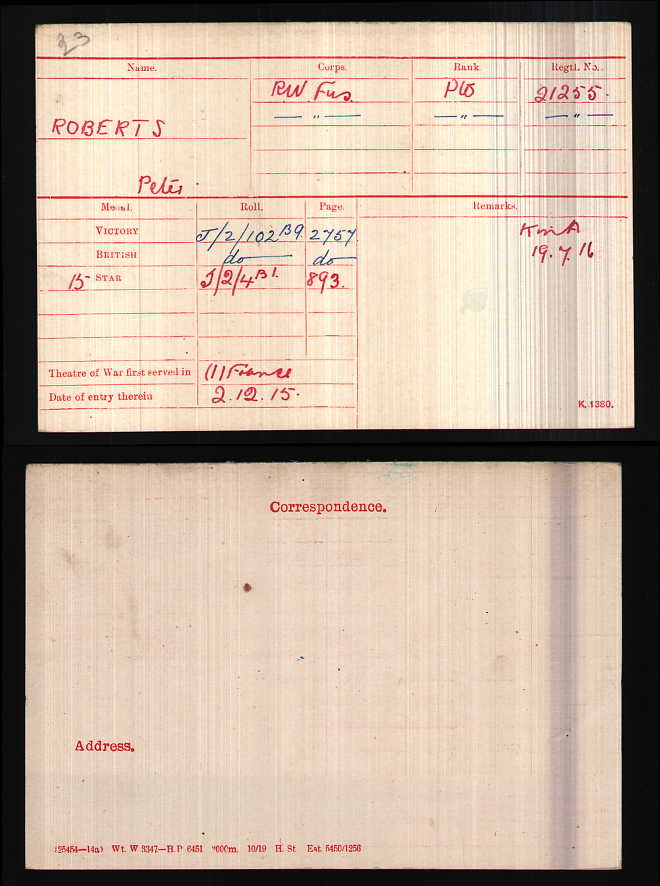 33
Name. Corps. Rank Regtl. No.
RW Fus. Pte 21255.
ROBERTS — " — — " — — " —
Peter.
Medal. Roll. Page. Remarks.
VICTORY J/2/102 B9. 2757. K in A
BRITISH do do 19.7.16
15 STAR J/2/4 B1. 893.
Theatre of War first served in (1) France
Date of entry therein 2.12.15.
K. 1380.
Correspondence.
Address.
(25454—14a) Wt. W 3347—H.P. 6451 000m. 10/19 H. St Est. 5450/1256